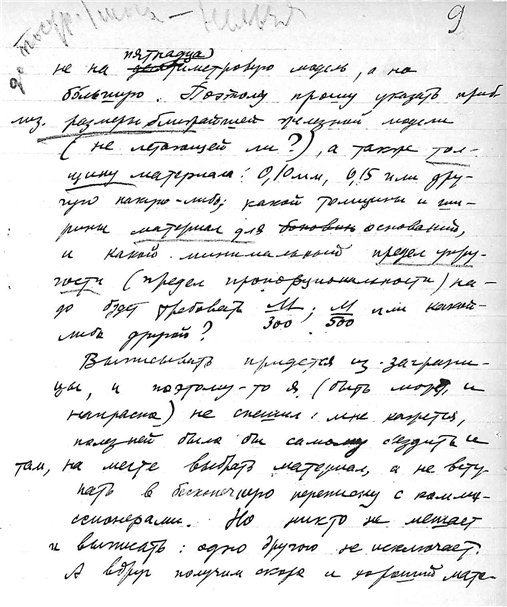 9
пятнадца
не на метровую модель, а на
большую. Поэтому прошу указать приб
лиз. размеры ближайшей железной модели
(не летающей ли?), а также тол-
щину материала: 0,10 мм, 0,15 или дру-
гую какую-либо; какой толщины и ши-
рины материал для боковин оснований,
и какой минимальный предел упру-
гости (предел пропорциональности) на-
до будет требовать M/300; M/500 или какой-
либо другой?
Выписывать придется из-заграни-
цы, и поэтому-то я (быть может, и
напрасно) не спешил: мне кажется,
полезней была бы самому съездить и
там, на месте выбрать материал, а не всту-
пать в бесконечную переписку с комми-
ссионерами. Но никто не мешает
и выписать: одно другого не исключает.
А вдруг получим скоро и хороший мате-